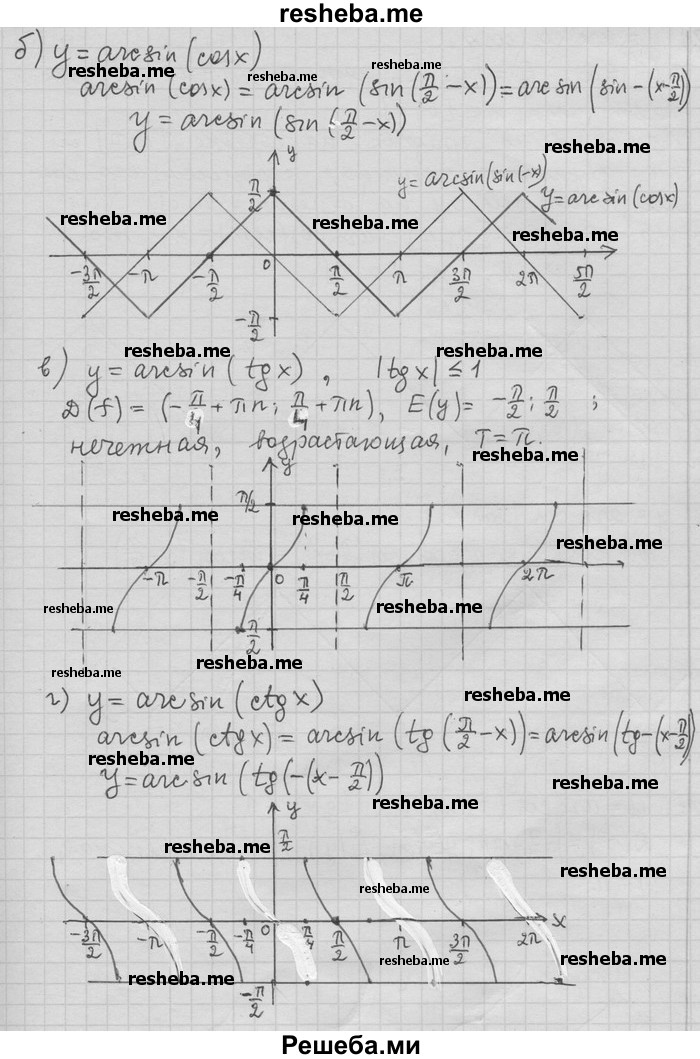 resheba.me
б) y = arcsin (cosx)
resheba.me
resheba.me
resheba.me
arcsin (cosx) = arcsin (sin (π/2 - x)) = arcsin (sin - (x - π/2))
y = arcsin (sin (π/2 - x))
resheba.me
y
y = arcsin(sin(-x))
π/2
y = arcsin (cosx)
resheba.me
resheba.me
resheba.me
-3π/2 -π -π/2 0 π/2 π 3π/2 2π 5π/2
-π/2
resheba.me
resheba.me
в) y = arcsin (tgx), |tgx| ≤ 1
D(f) = (-π/4 + πn; π/4 + πn), E(y) = -π/2; π/2 ;
нечетная, возрастающая, T = π.
resheba.me
y
π/2
resheba.me
resheba.me
resheba.me
-π -π/2 -π/4 0 π/4 π/2 π 2π
resheba.me
resheba.me
-π/2
resheba.me
resheba.me
г) y = arcsin (ctgx)
resheba.me
arcsin (ctgx) = arcsin (tg (π/2 - x)) = arcsin (tg - (x - π/2))
resheba.me
y = arcsin (tg(-(x - π/2))
resheba.me
resheba.me
y
π/2
resheba.me
resheba.me
resheba.me
x
-3π/2 -π -π/2 -π/4 0 π/4 π/2 π 3π/2 2π
resheba.me
resheba.me
resheba.me
-π/2
Решеба.ми